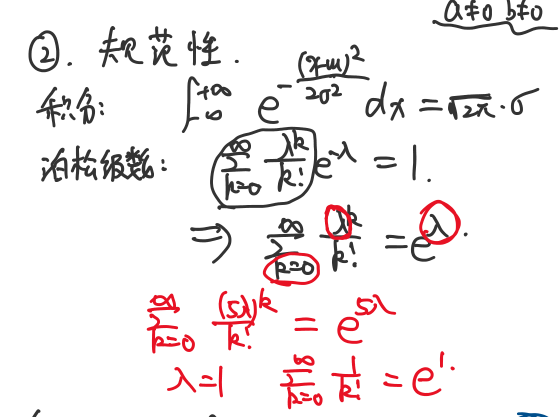 a≠0 b≠0
②. 规范性.
积分: ∫_{-∞}^{+∞} e^{-\frac{(x-μ)^2}{2σ^2}} dx = √2π · σ
泊松级数: \sum_{k=0}^{∞} \frac{λ^k}{k!} e^{-λ} = 1.
⇒ \sum_{k=0}^{∞} \frac{λ^k}{k!} = e^λ.
\sum_{k=0}^{∞} \frac{(5λ)^k}{k!} = e^{5λ}
λ=1 \sum_{k=0}^{∞} \frac{1}{k!} = e^1.